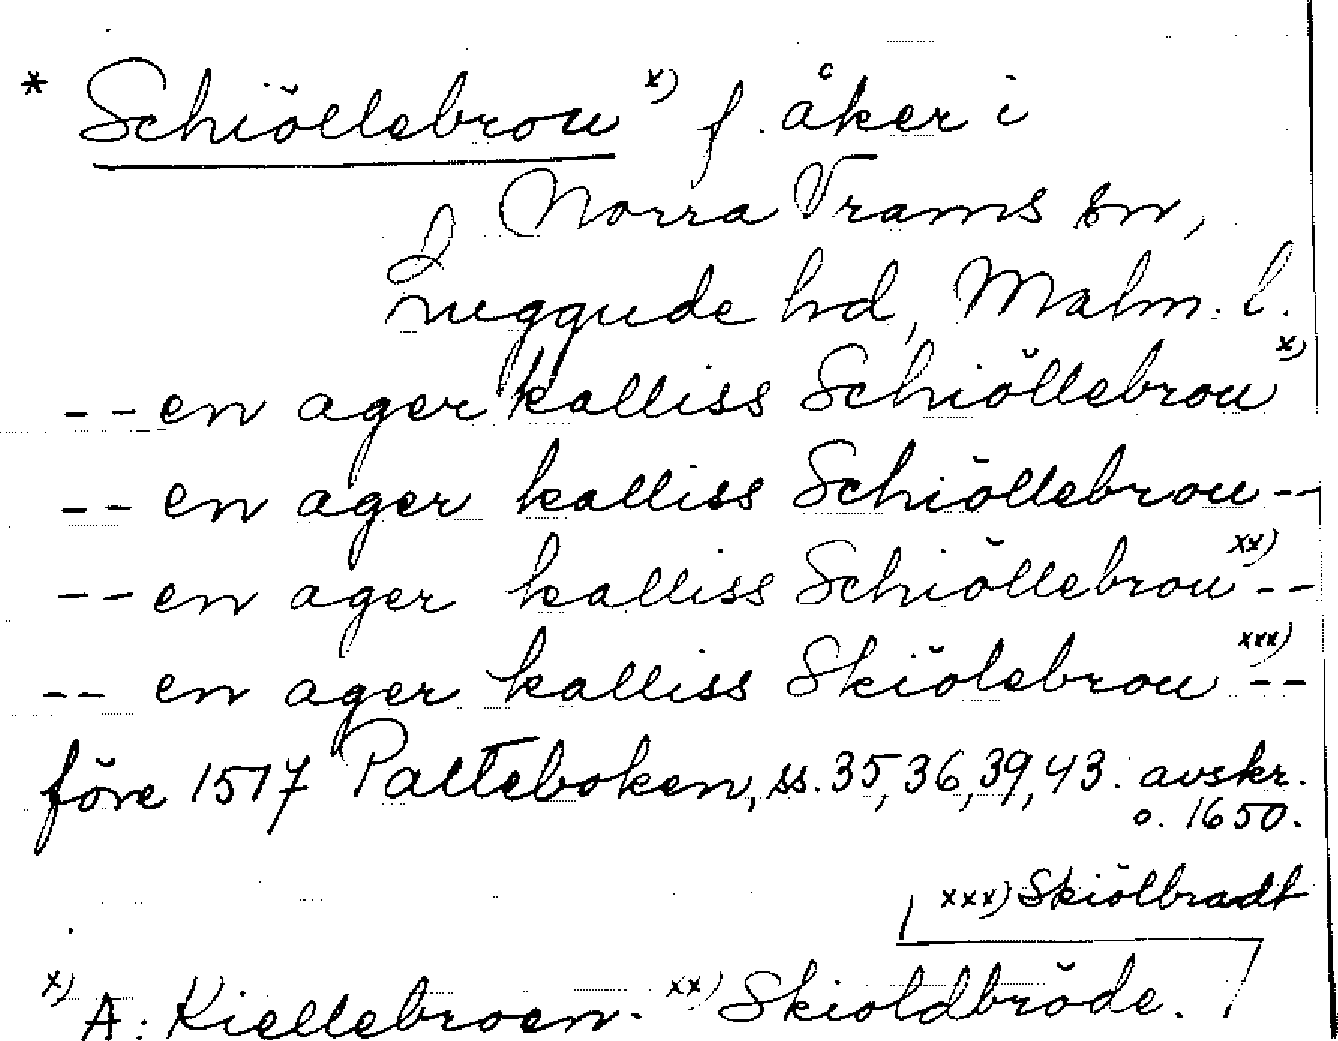 * Schiöllebrou x) f. åker i
Norra Vrams sn,
Luggude hd, Malm. l.
-- en ager kalliss Schiöllebrou x)
-- en ager kalliss Schiöllebrou --
-- en ager kalliss Schiöllebrou xx) --
-- en ager kalliss Skiölebrou xxx) --
före 1517 Palteboken, ss. 35, 36, 39, 43. avskr.
o. 1650.
xxx) Skiölbradt
x) A: Kiellebroen. xx) Skioldbröde.